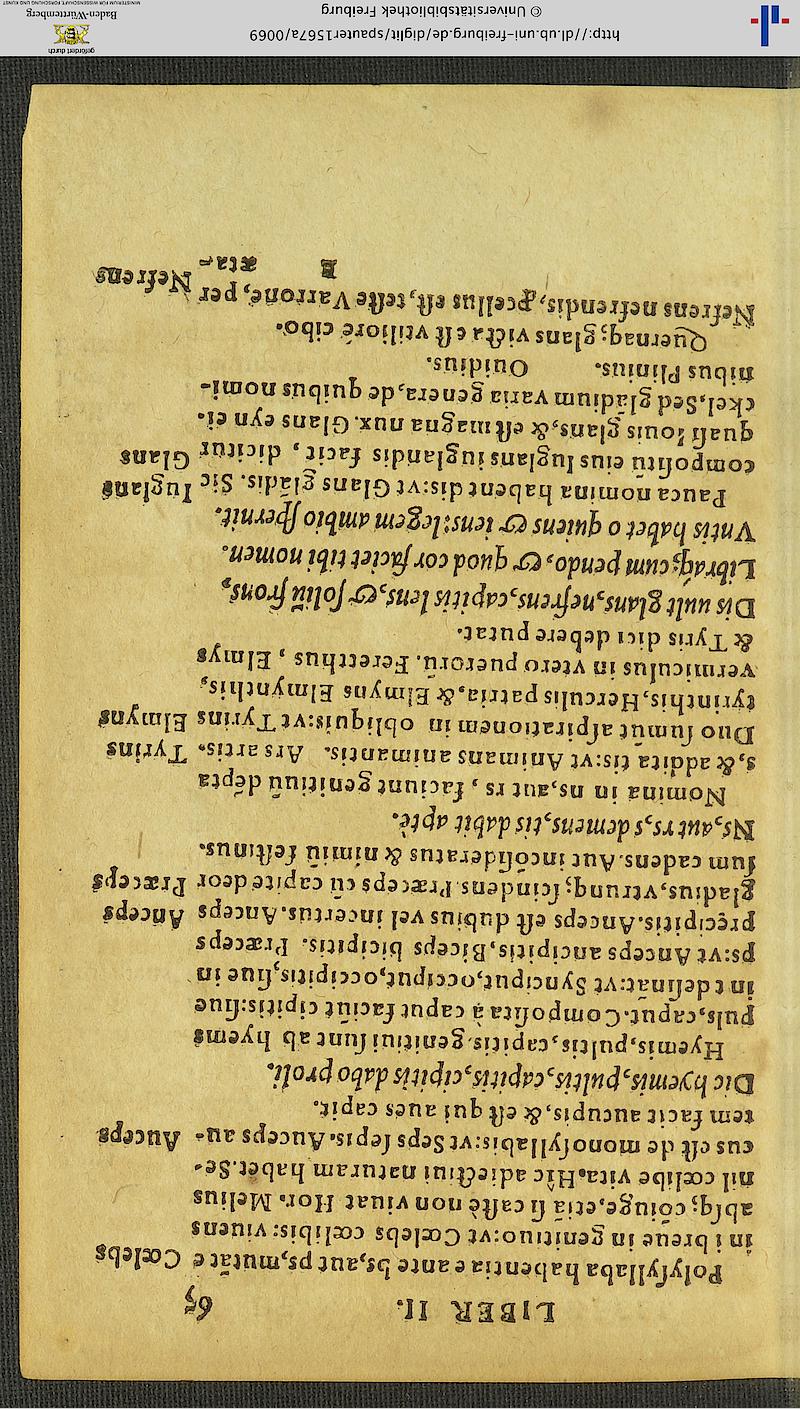 LIBER II. 65
Polysyllaba habentia e ante bs, aut ps, mutāt e Cœlebs
in i breue in genitiuo: vt Cœlebs cœlibis: viuens
absq; coniuge, etiā si castè non viuat Hor. Melius
nil cœlibe vita. Hîc adiectiui naturam habet. Se-
cus est de monosyllabis: vt Seps sepis. Auceps au- Auceps
tem facit aucupis, & est qui aues capit.
Dic hyemis, pultis, capitis, cipitis dabo proli.
Hyemis, pultis, capitis, genitiui sunt ab hyems
puls, caput. Composita à caput faciūt cipitis: siue
in t desinat: vt Synciput, occiput, occipitis, siue in
ps: vt Anceps ancipitis, Biceps bicipitis. Præceps
præcipitis. Anceps est dubius vel incertus. Anceps Anceps
gladius, vtrunq; scindens. Præceps cū capite deor Præceps
sum cadens. Aut incōsideratus & nimiū festinus.
Ns, aut rs, s demens, tis dabit aptè.
Nomina in ns, aut rs, faciunt genitiuū dēpta
s, & addita tis: vt Animans animantis. Ars artis. Tyrins
Duo sumut aspirationem in obliquis: vt Tyrins Elmyns
tyrinthis, Herculis patria, & Elmyns Elmynthis,
vermiculus in vtero puerorū. Feretthus, Elmys
& Tyris dici debere putat.
Dis uult glans, nefrens, capitis lens, & soliū frons,
Libraq; cum pendo, & quod cor faciet tibi nomen.
Vntis habet o quiens & iens: legem ambio spernit.
Pauca nomina habent dis: vt Glans glādis. Sic Inglans
compositū eius Iuglans iuglandis facit, dicitur Glans
quasi Iouis glans, & est magna nux. Glans eyn ei-
ckel, Sed glādium varia genera, de quibus nomi-
nibus Plinius. Ouidius.
Quernaq; glans victa est vtiliore cibo.
Nefrens nefrendis, porcellus est, teste Varrone, per Nefrens
E æta-
http://dl.ub.uni-freiburg.de/diglit/spauter1567a/0069
© Universitätsbibliothek Freiburg
gefördert durch
Baden-Württemberg
MINISTERIUM FÜR WISSENSCHAFT, FORSCHUNG UND KUNST